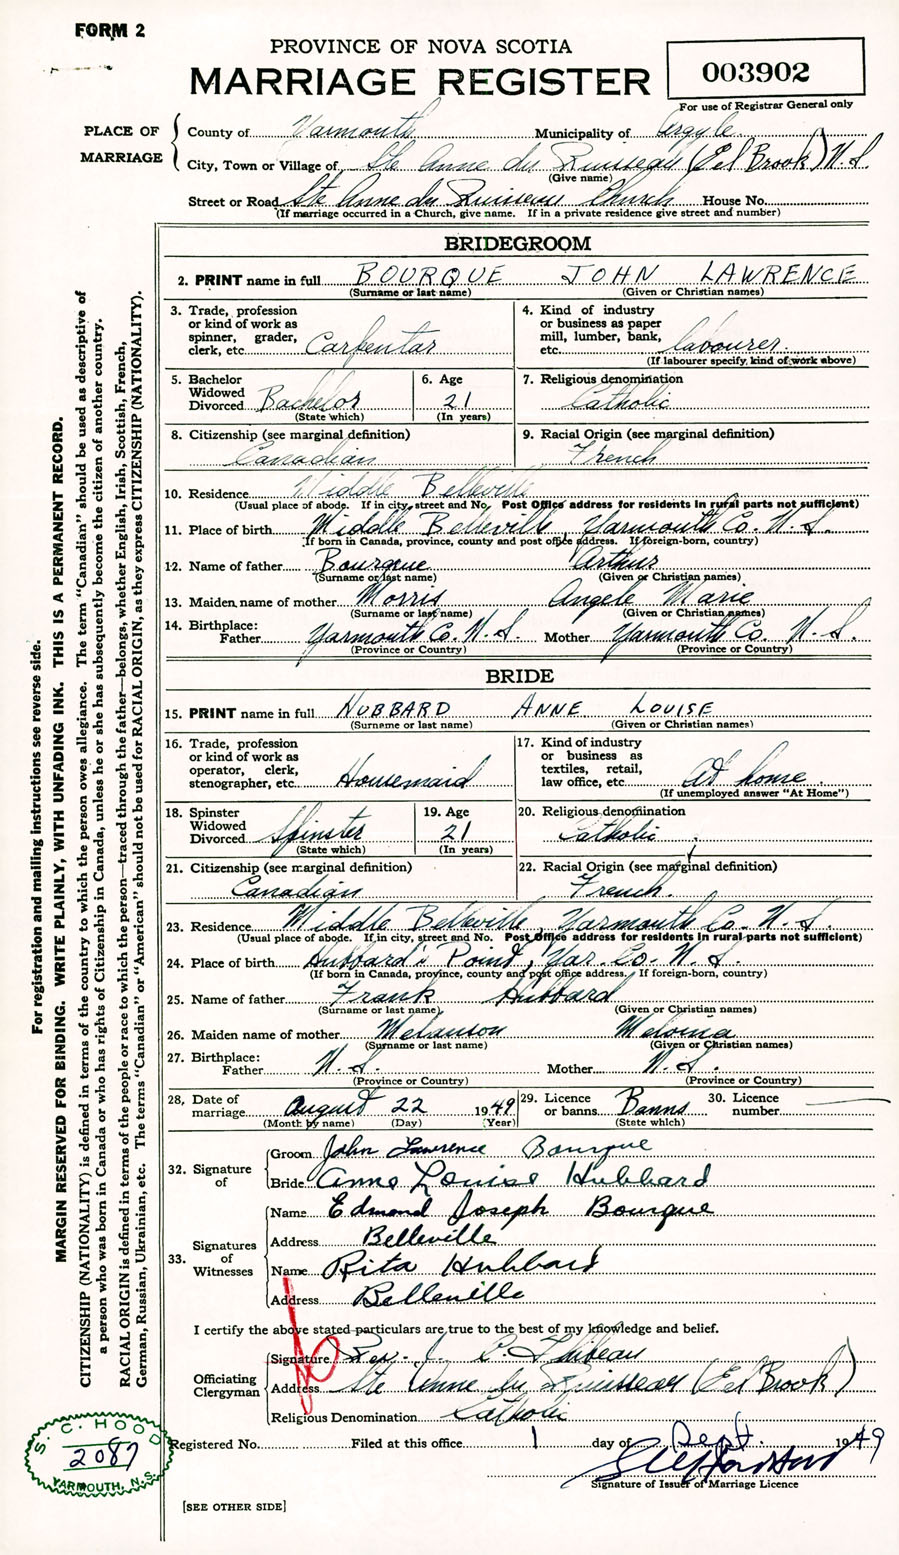 FORM 2
PROVINCE OF NOVA SCOTIA
MARRIAGE REGISTER
003902
For use of Registrar General only
PLACE OF MARRIAGE
County of Yarmouth Municipality of Argyle
City, Town or Village of Ste Anne du Ruisseau (Eel Brook) N.S.
(Give name)
Street or Road Ste Anne du Ruisseau Church House No.
(If marriage occurred in a Church, give name. If in a private residence give street and number)
BRIDEGROOM
2. PRINT name in full BOURQUE JOHN LAWRENCE
(Surname or last name) (Given or Christian names)
3. Trade, profession or kind of work as spinner, grader, clerk, etc. Carpentar
4. Kind of industry or business as paper mill, lumber, bank, etc. labourer.
(If labourer specify kind of work above)
5. Bachelor Widowed Divorced Bachelor
(State which)
6. Age 21
(In years)
7. Religious denomination
Catholic
8. Citizenship (see marginal definition)
Canadian
9. Racial Origin (see marginal definition)
French
10. Residence Middle Belleville
(Usual place of abode. If in city, street and No. Post Office address for residents in rural parts not sufficient)
11. Place of birth Middle Belleville, Yarmouth Co. N.S.
(If born in Canada, province, county and post office address. If foreign-born, country)
12. Name of father Bourque Arthur
(Surname or last name) (Given or Christian names)
13. Maiden name of mother Morris Angele Marie
(Surname or last name) (Given or Christian names)
14. Birthplace:
Father Yarmouth Co. N.S. Mother Yarmouth Co. N.S.
(Province or Country) (Province or Country)
BRIDE
15. PRINT name in full HUBBARD ANNE LOUISE
(Surname or last name) (Given or Christian names)
16. Trade, profession or kind of work as operator, clerk, stenographer, etc. Housemaid
17. Kind of industry or business as textiles, retail, law office, etc. At home.
(If unemployed answer "At Home")
18. Spinster Widowed Divorced Spinster
(State which)
19. Age 21
(In years)
20. Religious denomination
Catholic
21. Citizenship (see marginal definition)
Canadian
22. Racial Origin (see marginal definition)
French.
23. Residence Middle Belleville Yarmouth Co. N.S.
(Usual place of abode. If in city, street and No. Post Office address for residents in rural parts not sufficient)
24. Place of birth Hubbard's Point, Yar. Co. N.S.
(If born in Canada, province, county and post office address. If foreign-born, country)
25. Name of father Frank Hubbard
(Surname or last name) (Given or Christian names)
26. Maiden name of mother Melanson Meloma
(Surname or last name) (Given or Christian names)
27. Birthplace:
Father N.S. Mother N.S.
(Province or Country) (Province or Country)
28. Date of marriage August 22 1949
(Month by name) (Day) (Year)
29. Licence or banns Banns
(State which)
30. Licence number
32. Signature of
Groom John Lawrence Bourque
Bride Anne Louise Hubbard
33. Signatures of Witnesses
Name Edmond Joseph Bourque
Address Belleville
Name Rita Hubbard
Address Belleville
I certify the above stated particulars are true to the best of my knowledge and belief.
Officiating Clergyman
Signature Rev. J. C. Thibeau
Address Ste Anne du Ruisseau (Eel Brook)
Religious Denomination Catholic
Registered No. Filed at this office 1 day of Sept. 1949
Signature of Issuer of Marriage Licence
[SEE OTHER SIDE]
S. C. HOOD
2087
YARMOUTH, N.S.
For registration and mailing instructions see reverse side.
MARGIN RESERVED FOR BINDING. WRITE PLAINLY, WITH UNFADING INK. THIS IS A PERMANENT RECORD.
CITIZENSHIP (NATIONALITY) is defined in terms of the country to which the person owes allegiance. The term "Canadian" should be used as descriptive of
a person who was born in Canada or who has rights of Citizenship in Canada, unless he or she has subsequently become the citizen of another country.
RACIAL ORIGIN is defined in terms of the people or race to which the person—traced through the father—belongs, whether English, Irish, Scottish, French,
German, Russian, Ukrainian, etc. The terms "Canadian" or "American" should not be used for RACIAL ORIGIN, as they express CITIZENSHIP (NATIONALITY).